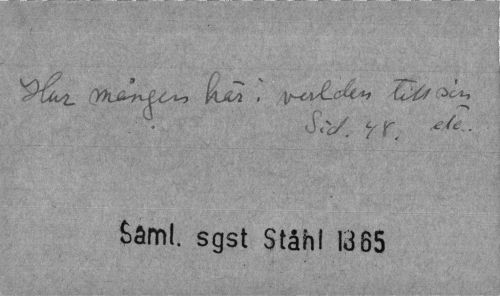 Hur mången här i verlden till sin
Sid. 48. etc.
Saml. sgst Ståhl 1365